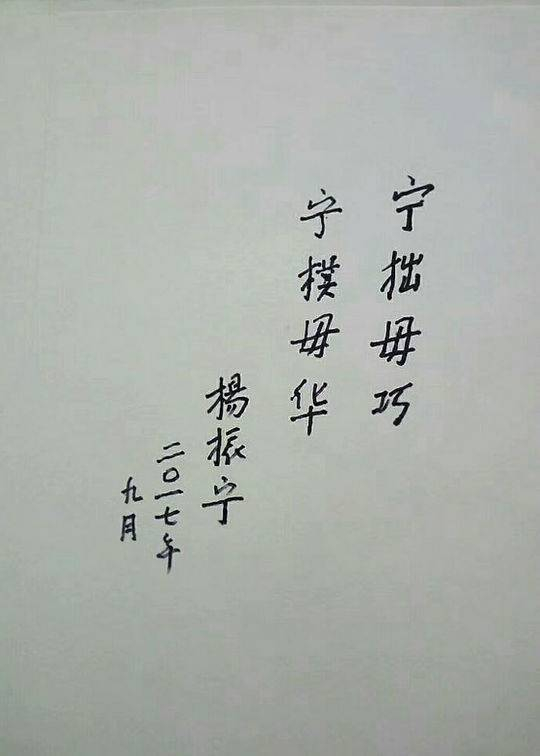 宁拙毋巧
宁樸毋华
楊振宁
二〇一七年
九月